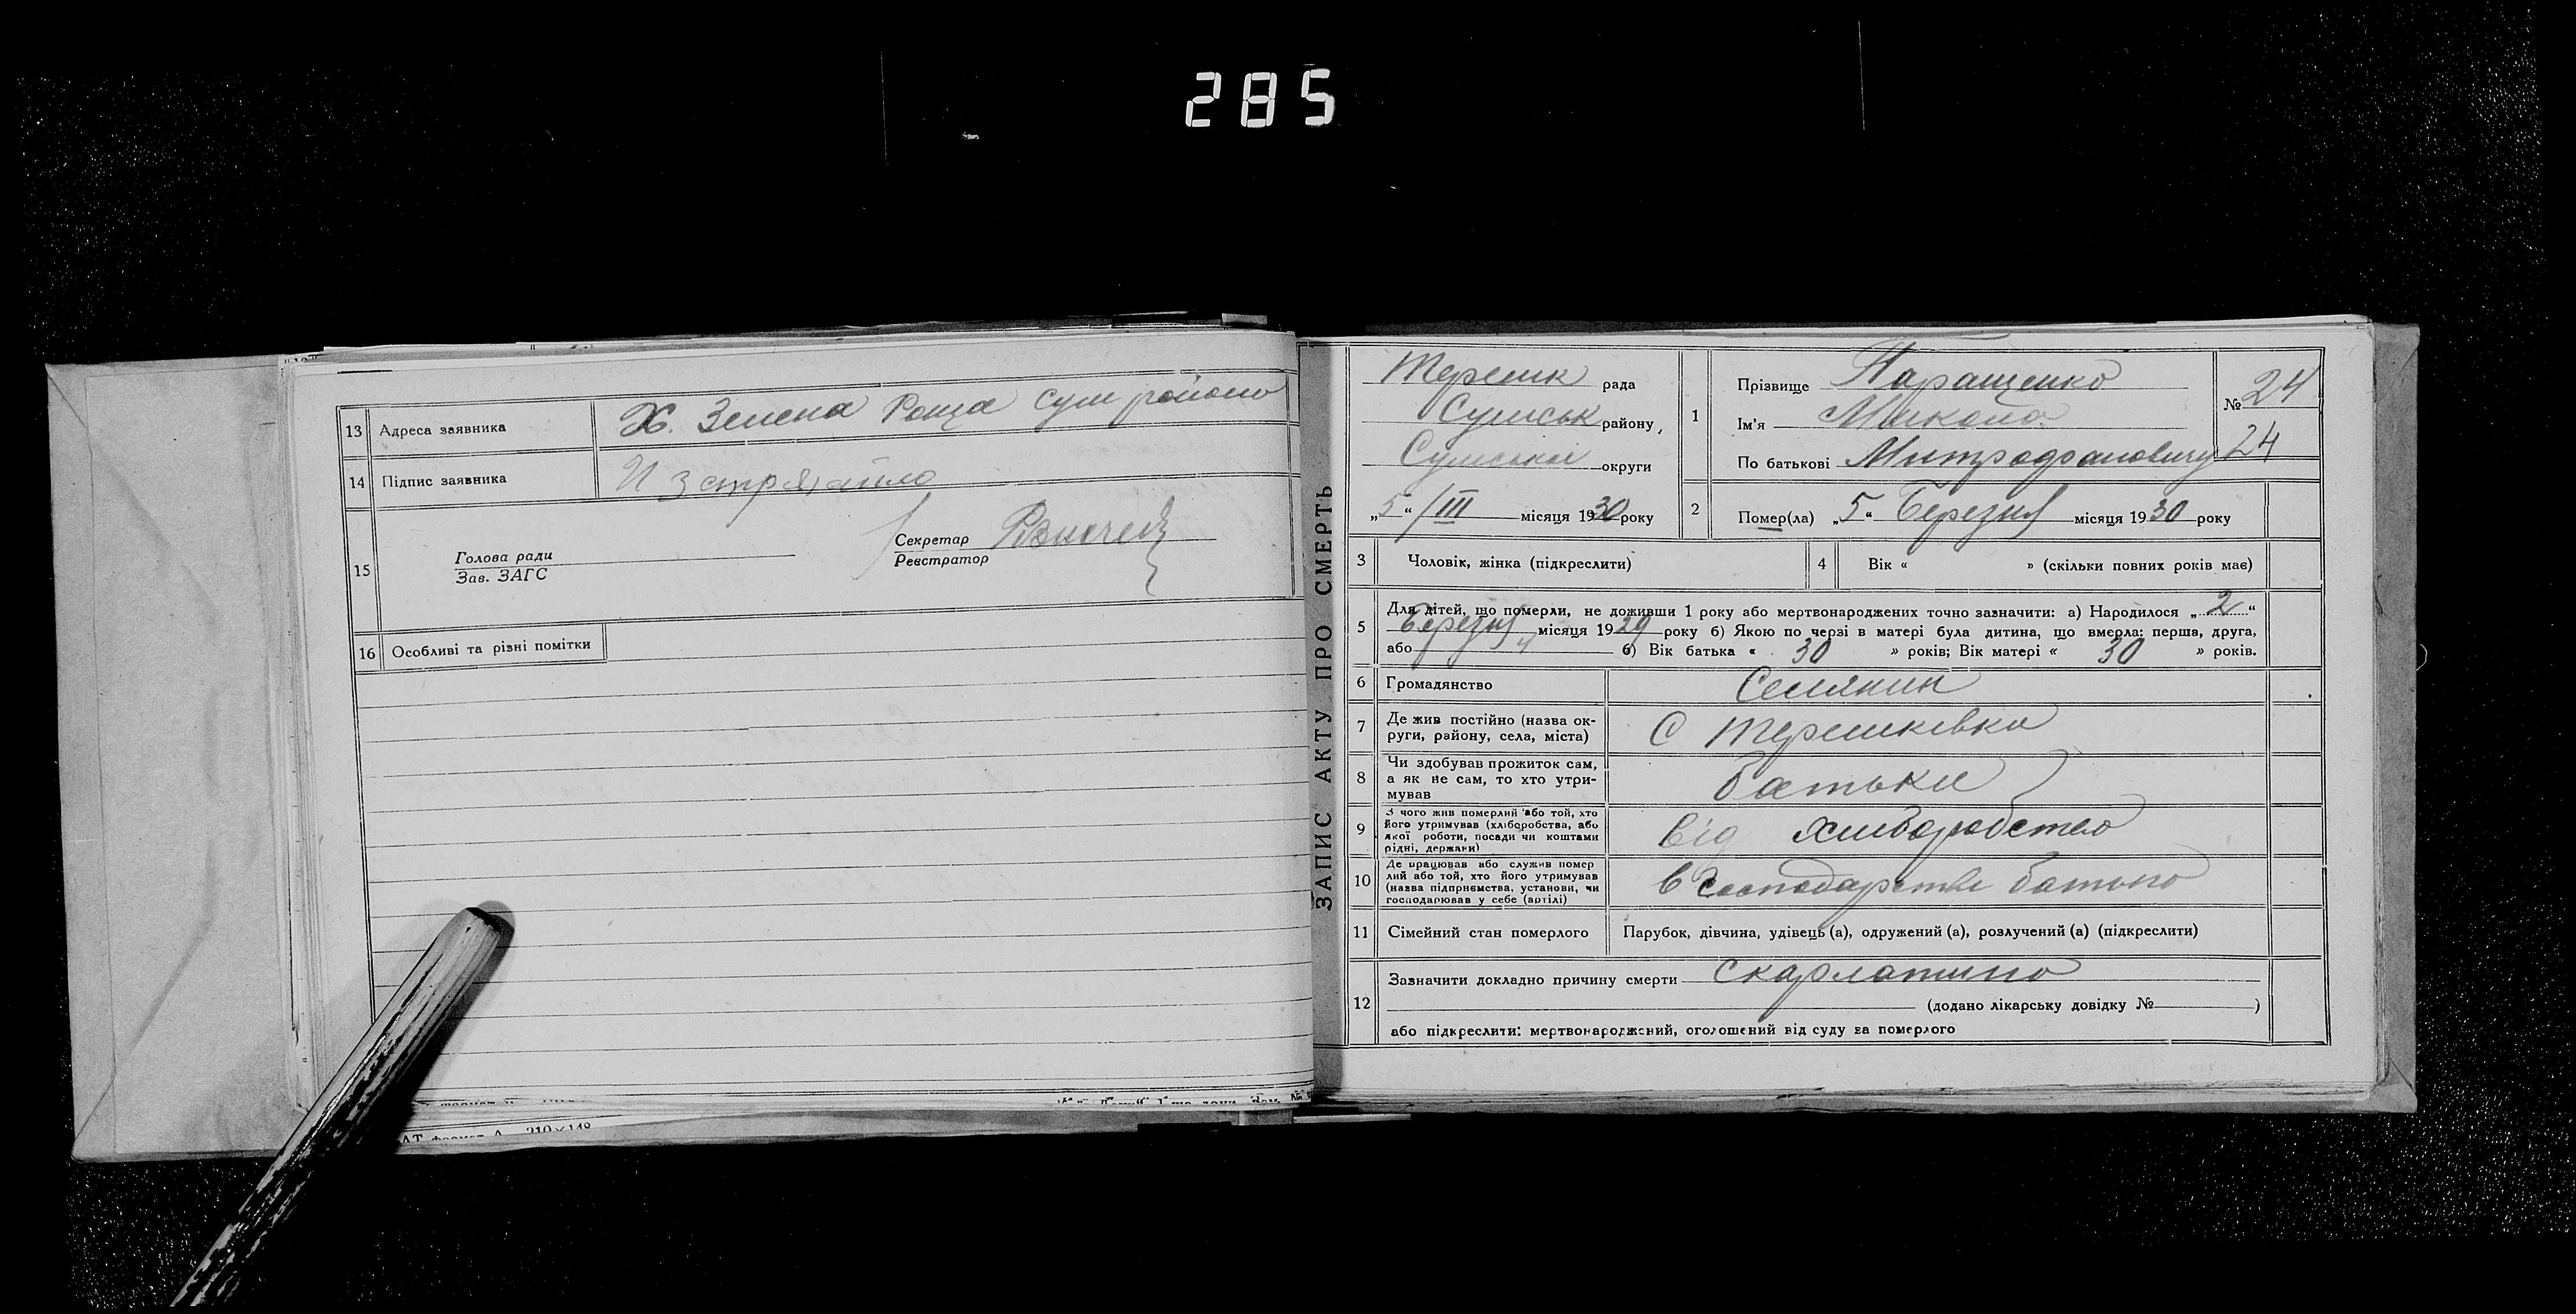 285
13 Адреса заявника Х. Зелена Роща Сум району
14 Підпис заявника
15 Голова ради
Зав. ЗАГС
Секретар
Реєстратор
16 Особливі та різні помітки
ЗАПИС АКТУ ПРО СМЕРТЬ
Терешк рада
Сумськ району,
Сумської округи
„5“ /III місяця 1930 року
1 Прізвище Паращенко
Ім'я Микола
По батькові Митрофанович
№ 24
24
2 Помер(ла) „5“ Березня місяця 1930 року
3 Чоловік, жінка (підкреслити)
4 Вік « » (скільки повних років має)
5 Для дітей, що померли, не доживши 1 року або мертвонароджених точно зазначити: а) Народилося „2“
Березня місяця 1929 року б) Якою по черзі в матері була дитина, що вмерла: перша, друга,
або 4 б) Вік батька « 30 » років; Вік матері « 30 » років.
6 Громадянство Селянин
7 Де жив постійно (назва округи, району, села, міста) С Терешківка
8 Чи здобував прожиток сам,
а як не сам, то хто утри-
мував Батьки
9 З чого жив померлий або той, хто
його утримував (хліборобства, або
якої роботи, посади чи коштами
рідні, держави) від хліборобства
10 Де працював або служив помер
лий або той, хто його утримував
(назва підприємства, установи, чи
господарював у себе (артілі) в господарстві батька
11 Сімейний стан померлого Парубок, дівчина, удівець (а), одружений (а), розлучений (а) (підкреслити)
12 Зазначити докладно причину смерти скарлатина
(додано лікарську довідку № )
або підкреслити: мертвонароджений, оголошений від суду за померлого